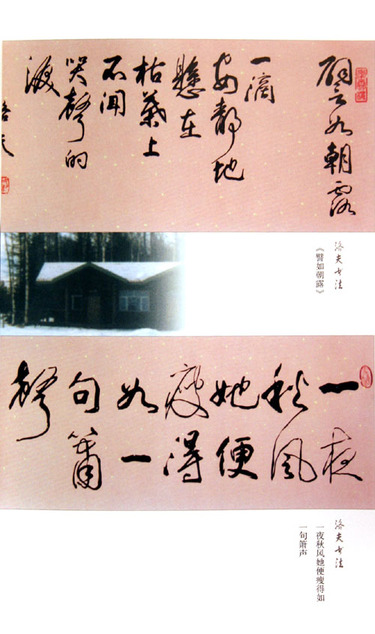 譬如朝露
一滴
安靜地
懸在
枯葉上
不聞
哭聲的
淚
洛夫
洛夫书法
《譬如朝露》
一夜
秋風
她便
瘦得
如一
句簫
聲
洛夫书法
一夜秋风她便瘦得如
一句箫声